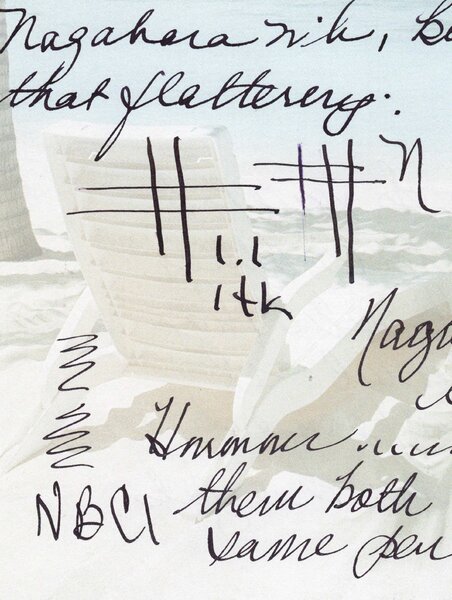 Nagahara nib,
that flattering.
N
1.1
itk
Hmmmm.....
NBC1 them both
same pen